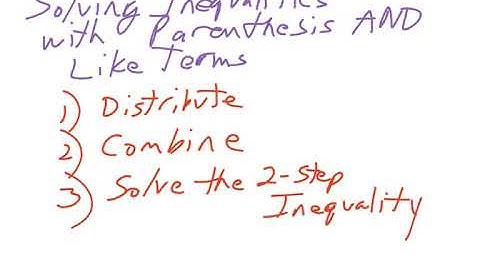 Solving Inequalities
with Parenthesis AND
Like Terms
1) Distribute
2) Combine
3) Solve the 2-step
Inequality